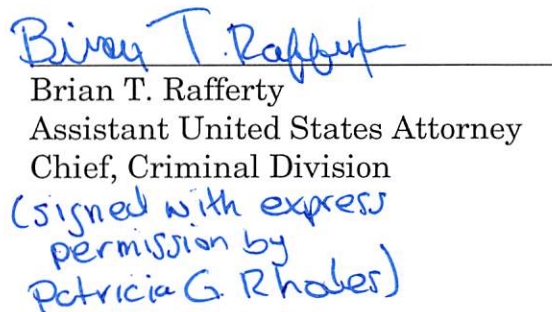 Brian T. Rafferty
Brian T. Rafferty
Assistant United States Attorney
Chief, Criminal Division
(signed with express
permission by
Patricia G. Rhodes)